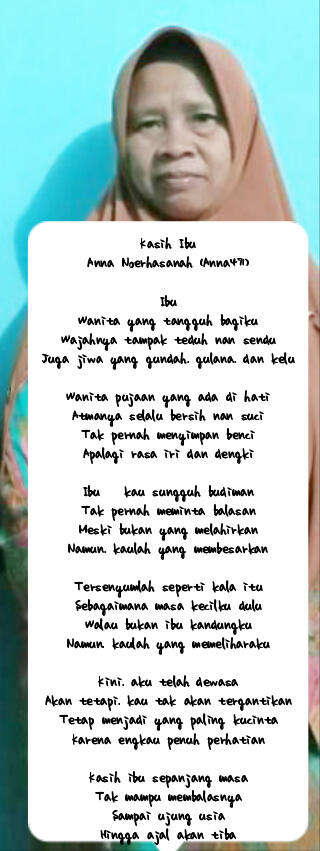 Kasih Ibu
Anna Noerhasanah (Anna471)
Ibu
Wanita yang tangguh bagiku
Wajahnya tampak teduh nan sendu
Juga jiwa yang gundah. gulana. dan kelu
Wanita pujaan yang ada di hati
Atmanya selalu bersih nan suci
Tak pernah menyimpan benci
Apalagi rasa iri dan dengki
Ibu kau sungguh budiman
Tak pernah meminta balasan
Meski bukan yang melahirkan
Namun. kaulah yang membesarkan
Tersenyumlah seperti kala itu
Sebagaimana masa kecilku dulu
Walau bukan ibu kandungku
Namun kaulah yang memeliharaku
Kini. aku telah dewasa
Akan tetapi. kau tak akan tergantikan
Tetap menjadi yang paling kucinta
Karena engkau penuh perhatian
Kasih ibu sepanjang masa
Tak mampu membalasnya
Sampai ujung usia
Hingga ajal akan tiba